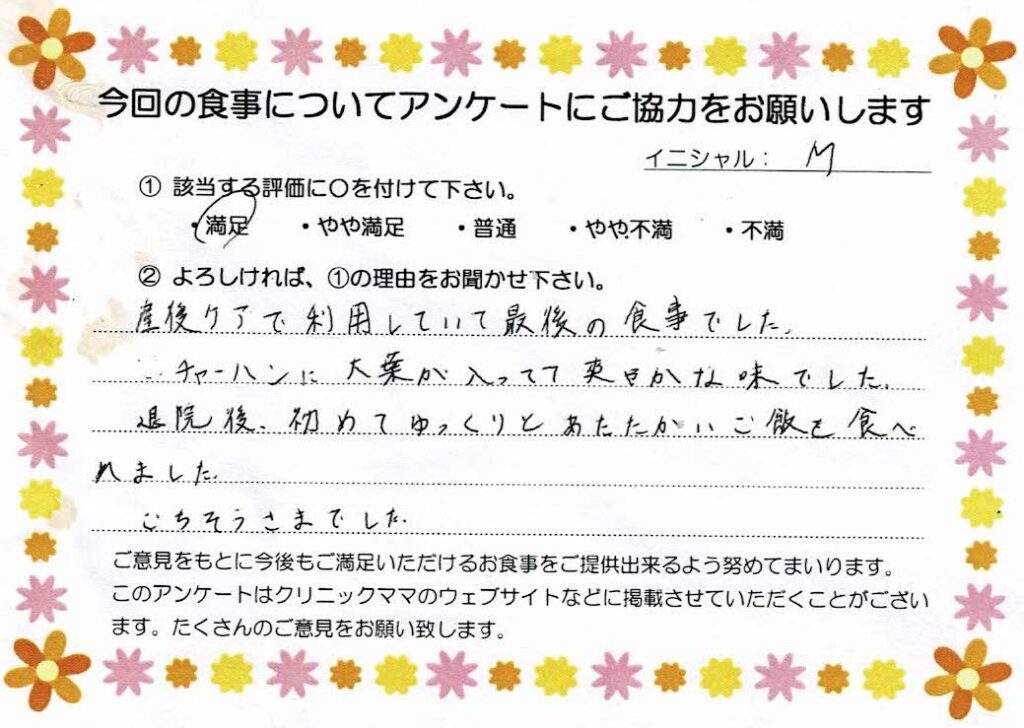 今回の食事についてアンケートにご協力をお願いします
イニシャル： M
① 該当する評価に〇を付けて下さい。
・満足 ・やや満足 ・普通 ・やや不満 ・不満
② よろしければ、①の理由をお聞かせ下さい。
産後ケアで利用していて最後の食事でした。
チャーハンに大葉が入ってて爽やかな味でした。
退院後、初めてゆっくりとあたたかいご飯を食べ
れました。
ごちそうさまでした。
ご意見をもとに今後もご満足いただけるお食事をご提供出来るよう努めてまいります。
このアンケートはクリニックママのウェブサイトなどに掲載させていただくことがござい
ます。たくさんのご意見をお願い致します。